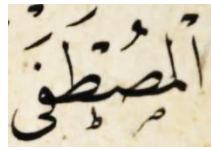 الْمُصْطَفَى